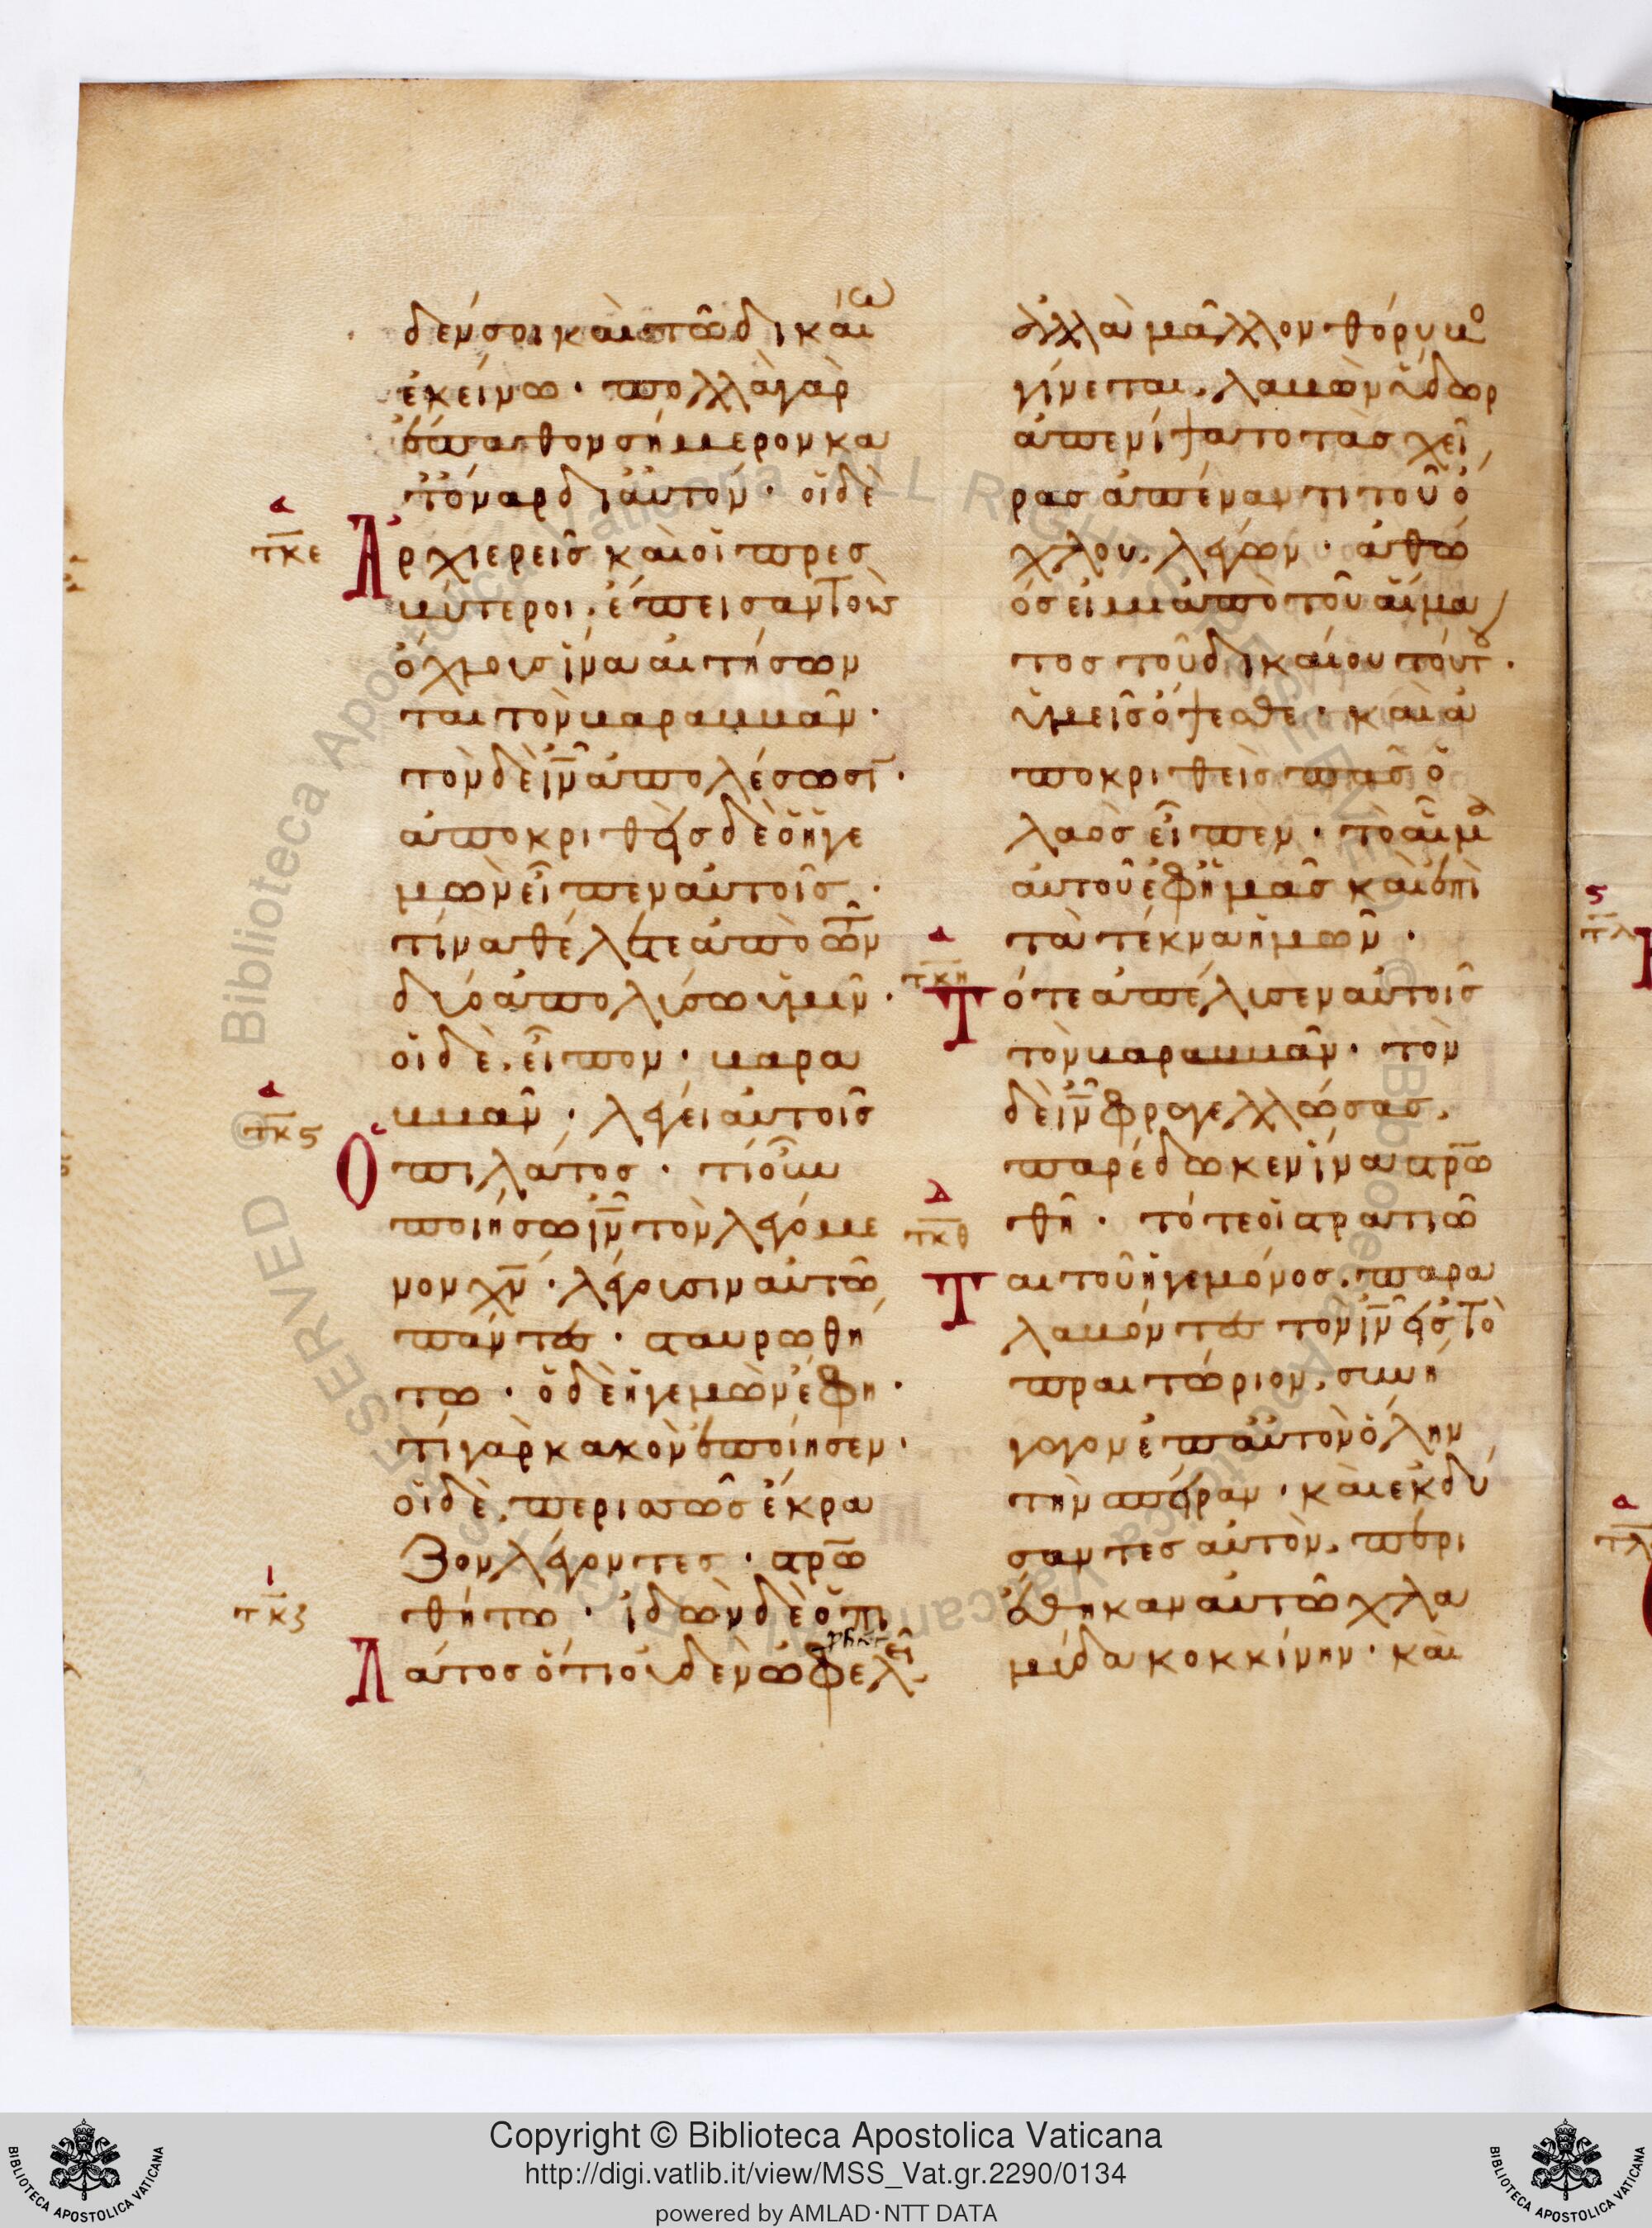 δὲν σοὶ καὶ τῶ δικαίω
ἐκείνω · πολλὰ γὰρ
ἔπαθον σήμερον κα
τ' ὄναρ δι' αὐτόν · οἱ δὲ
α
τκε
Ἀρχιερεῖς καὶ οἱ πρεσ
βύτεροι, ἔπεισαν τοὺς
ὄχλους ἵνα αἰτήσων
ται τὸν βαραββᾶν ·
τὸν δὲ ιν̅ ἀπολέσωσῑ ·
ἀποκριθεὶς δὲ ὁ ἡγε
μὼν εἶπεν αὐτοῖς ·
τίνα θέλετε ἀπὸ τῶν
δύο ἀπολύσω ὑμῖν ·
οἱ δὲ, εἶπον · βαρα
α
τκϛ
ββᾶν · λέγει αὐτοῖς
Ὁ πιλάτος · τί οὖν
ποιήσω ιν̅ τὸν λεγόμε
νον χν̅ · λέγουσιν αὐτῶ
πάντες · σταυρωθή
τω · ὁ δὲ ἡγεμὼν ἔφη ·
τί γὰρ κακὸν ἐποίησεν ·
οἱ δὲ, περισσῶς ἔκρα
ζον λέγοντες · στρω̅
ι
τκζ
θήτω · ἰδὼν δὲ ὁ πι
Λάτος ὅτι οὐδὲν ὠφελεῖ
ἀλλὰ μᾶλλον θόρυβο
γίνεται, λαβὼν ὕδωρ
ἀπενίψατο τὰς χεῖ
ρας ἀπέναντι τοῦ ὄ
χλου, λέγων · ἀθῶ
ός εἰμι ἀπὸ τοῦ αἵμα
τος τοῦ δικαίου τούτου ·
ὑμεῖς ὄψεσθε · καὶ ἀ
ποκριθεὶς πᾶς ὁ
λαὸς εἶπεν · τὸ αἷμα
αὐτοῦ ἐφ' ἡμᾶς καὶ ἐπὶ
τὰ τέκνα ἡμῶν ·
α
τκη
Τότε ἀπέλυσεν αὐτοῖς
τὸν βαραββᾶν · τὸν
δὲ ιν̅ φραγελλώσας,
παρέδωκεν ἵνα στρω̅
δ
τκθ
θῆ · τότε οἱ στρατιῶ
Ται τοῦ ἡγεμόνος, παρα
λαβόντες τὸν ιν̅ εἰς τὸ
πραιτώριον, συνή
γαγον ἐπ' αὐτὸν ὅλην
τὴν σπεῖραν · καὶ ἐκδύ
σαντες αὐτὸν, περι
έθηκαν αὐτῶ χλα
μύδα κοκκίνην · καὶ
Copyright © Biblioteca Apostolica Vaticana
http://digi.vatlib.it/view/MSS_Vat.gr.2290/0134
powered by AMLAD·NTT DATA